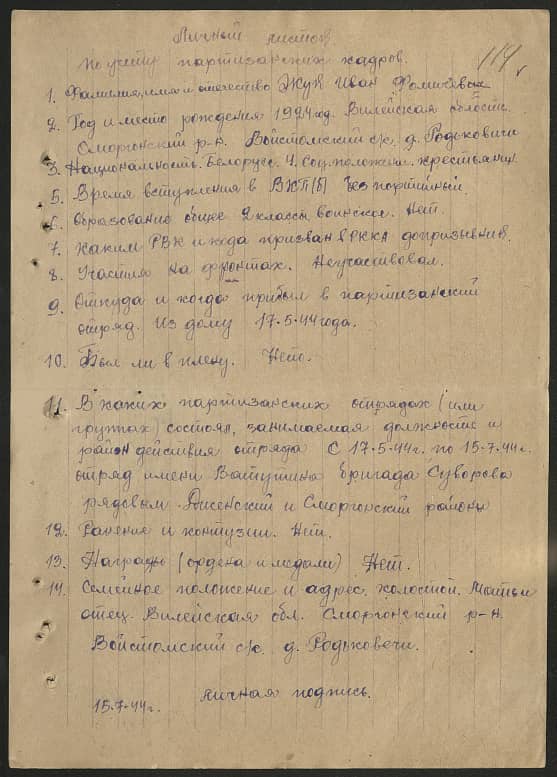 Личный листок
по учету партизанских кадров.
119
1. Фамилия, имя и отчество Жук Иван Фомичевич
2. Год и место рождения 1924 год. Вилейская область.
Сморгонский р-н. Войстомский с/с. д. Родьковичи
3. Национальность. Белорус. 4. Соц. положени. крестьянин
5. Время вступления в ВКП(б) Безпортийный.
6. Образование общее 2 классы, воинское. Нет.
7. Каким РВК и когда призван в РККА допризывник.
8. Участия на фронтах. Неучаствовал.
9. Откуда и когда прибыл в партизанский
отряд. Из дому 17.5.44 года.
10. Был ли в плену. Нет.
11. В каких партизанских отрядах (или
группах) состоял, занимаемая должность и
район действия отряда С 17.5.44г. по 15.7.44г.
отряд имени Ватутина бригада Суворова
рядовым. Дисенский и Сморгонский районы
12. Ранение и контузии. Нет.
13. Награды (ордена и медали) Нет.
14. Семейное положение и адрес. холостой. Мать и
отец. Вилейская обл. Сморгонский р-н.
Войстомский с/с. д. Родьковичи.
личная подпись.
15.7.44г.